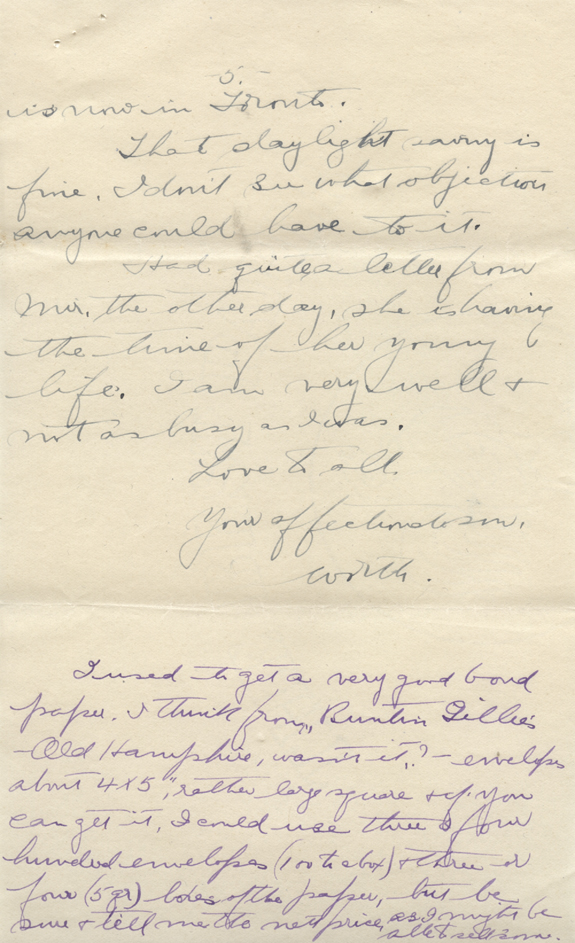 5.
is now in Toronto.
That daylight saving is
fine. I don't see what objection
anyone could have to it.
Had quite a letter from
the other day, she is having
the time of her young
life. I am very well &
not as busy as I was.
Love to all.
Your affectionate son,
Worth.
I used to get a very good bond
paper. I think from, Buntin Gillies
- Old Hampshire, wasn't it,? - envelopes
about 4x5", rather large square & if you
can get it, I could use three or four
hundred envelopes (100 to a box) & three or
four (5 qr) boxes of the paper, but be
sure & tell me the net price, as I might be
able to sell some.